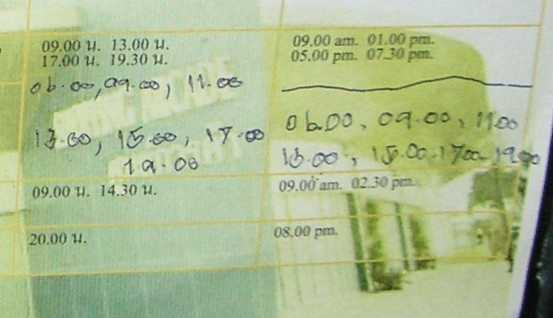 09.00 น. 13.00 น.
17.00 น. 19.30 น.
06.00, 09.00, 11.00
13.00, 15.00, 17.00
19.00
09.00 น. 14.30 น.
20.00 น.
09.00 am. 01.00 pm.
05.00 pm. 07.30 pm.
06.00, 09.00, 11.00
13.00, 15.00, 17.00, 19.00
09.00 am. 02.30 pm.
08.00 pm.